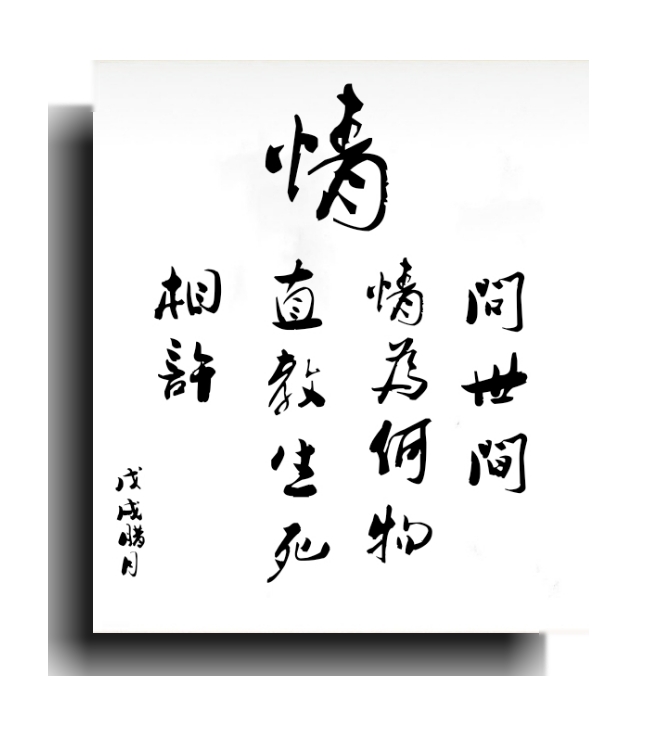 情
問世間
情為何物
直教生死
相許
戊戌腊月